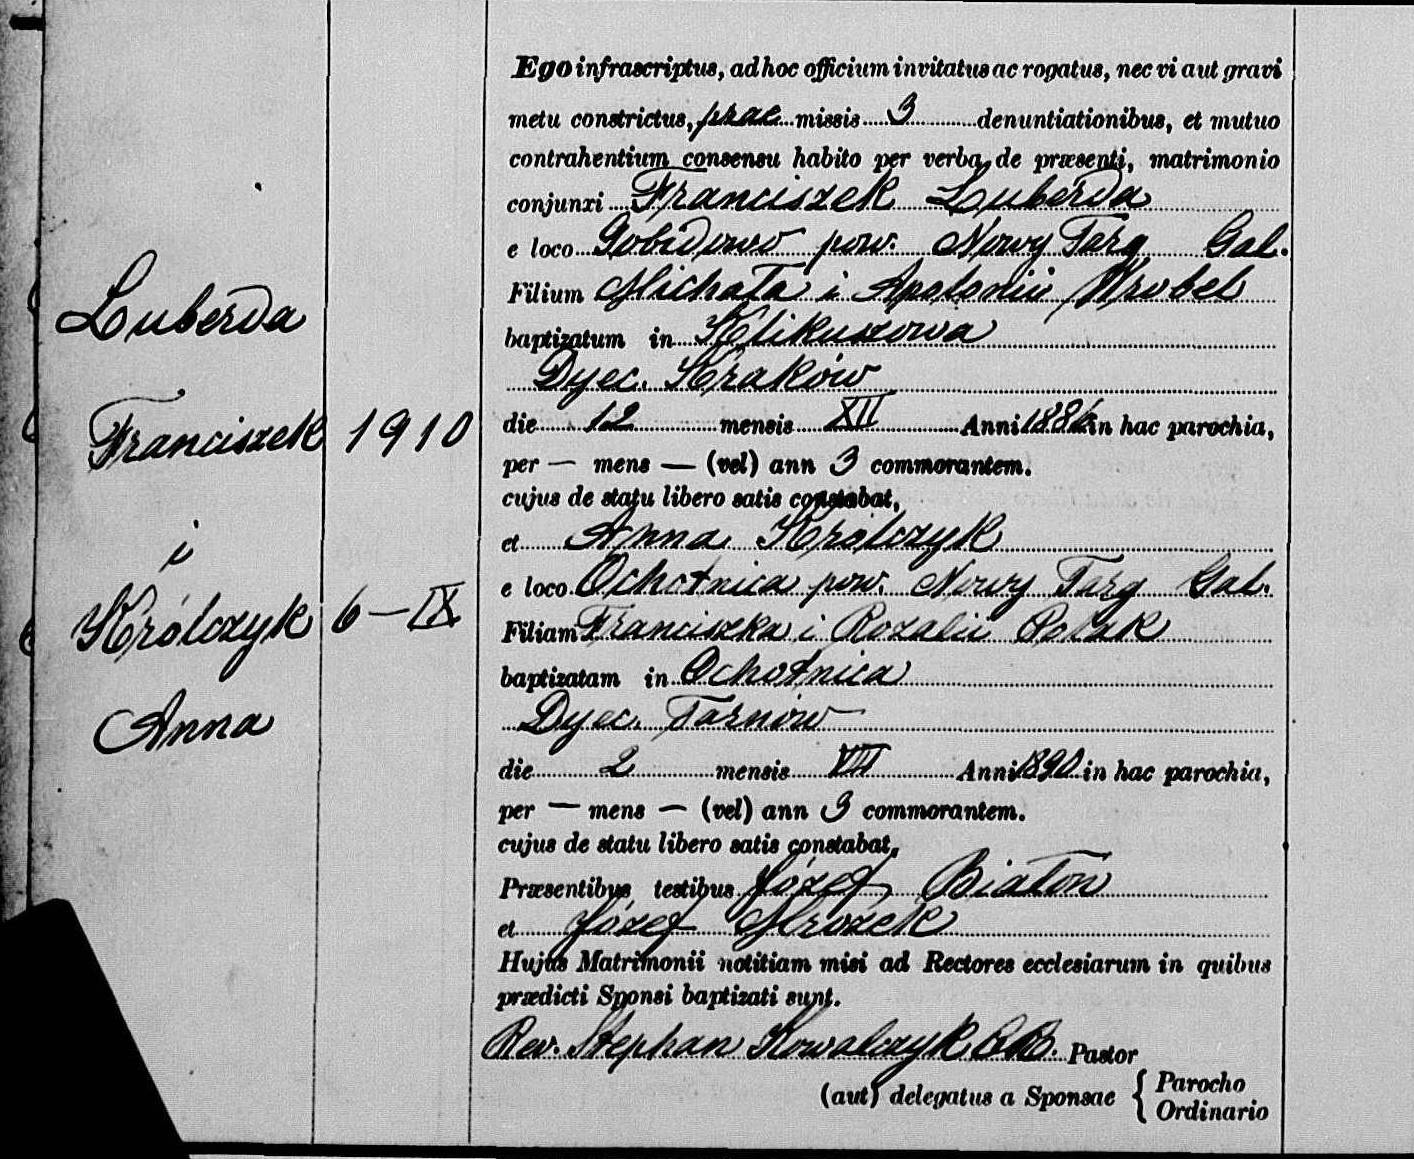 Luberda
Franciszek
i
Królczyk
Anna
1910
6-IX
Ego infrascriptus, ad hoc officium invitatus ac rogatus, nec vi aut gravi
metu constrictus, prae missis 3 denuntiationibus, et mutuo
contrahentium consensu habito per verba de præsenti, matrimonio
conjunxi Franciszek Luberda
e loco pow. Nowy Targ Gal.
Filium Michała i Apolonii Wrobel
baptizatum in Klikuszowa
Dyec. Kraków
die 12 mensis XII Anni 1886 in hac parochia,
per — mens — (vel) ann 3 commorantem.
cujus de statu libero satis constabat,
et Anna Królczyk
e loco Ochotnica pow. Nowy Targ Gal.
Filiam Franciszka i Rozalii Polak
baptizatam in Ochotnica
Dyec. Tarnów
die 2 mensis VII Anni 1890 in hac parochia,
per — mens — (vel) ann 3 commorantem.
cujus de statu libero satis constabat,
Præsentibus testibus Józef Białoń
et Józef Mrozek
Hujus Matrimonii notitiam misi ad Rectores ecclesiarum in quibus
prædicti Sponsi baptizati sunt.
Rev. Stephan Kowalczyk C.R. Pastor
(aut) delegatus a Sponsae { Parocho
Ordinario